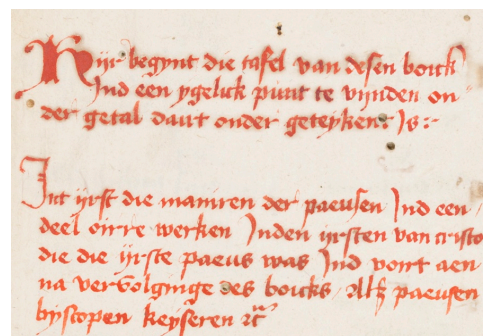 Hijr begynt die tafel van desen boick
Ind een ygelick punt te vynden on
der getal dair onder geteykent Is :~
Int ijrst die maniren der paeusen Ind een
deel oirre werken Inden ijrsten van cristo
die die ijrste paeus was Ind vort aen
na vervolginge des boicks Alsz paeusen
byscopen keyseren etc